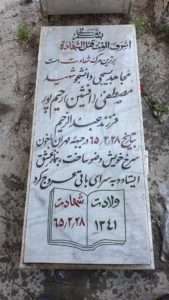 اشرف الموت قتل الشهادة
برترین مرگ شهادت است
مجاهد بسیجی دانشجو شهید
مصطفی (افشین) رحیم پور
فرزند عبدالرحیم
بتاریخ ۶۵/۲/۲۸ در جبهه مهران باخون
سرخ خویش وضو ساخت و بنماز عشق
ایستاد و به سرای باقی عروج کرد
ولادت
۱۳۴۱
شهادت
۶۵/۲/۲۸